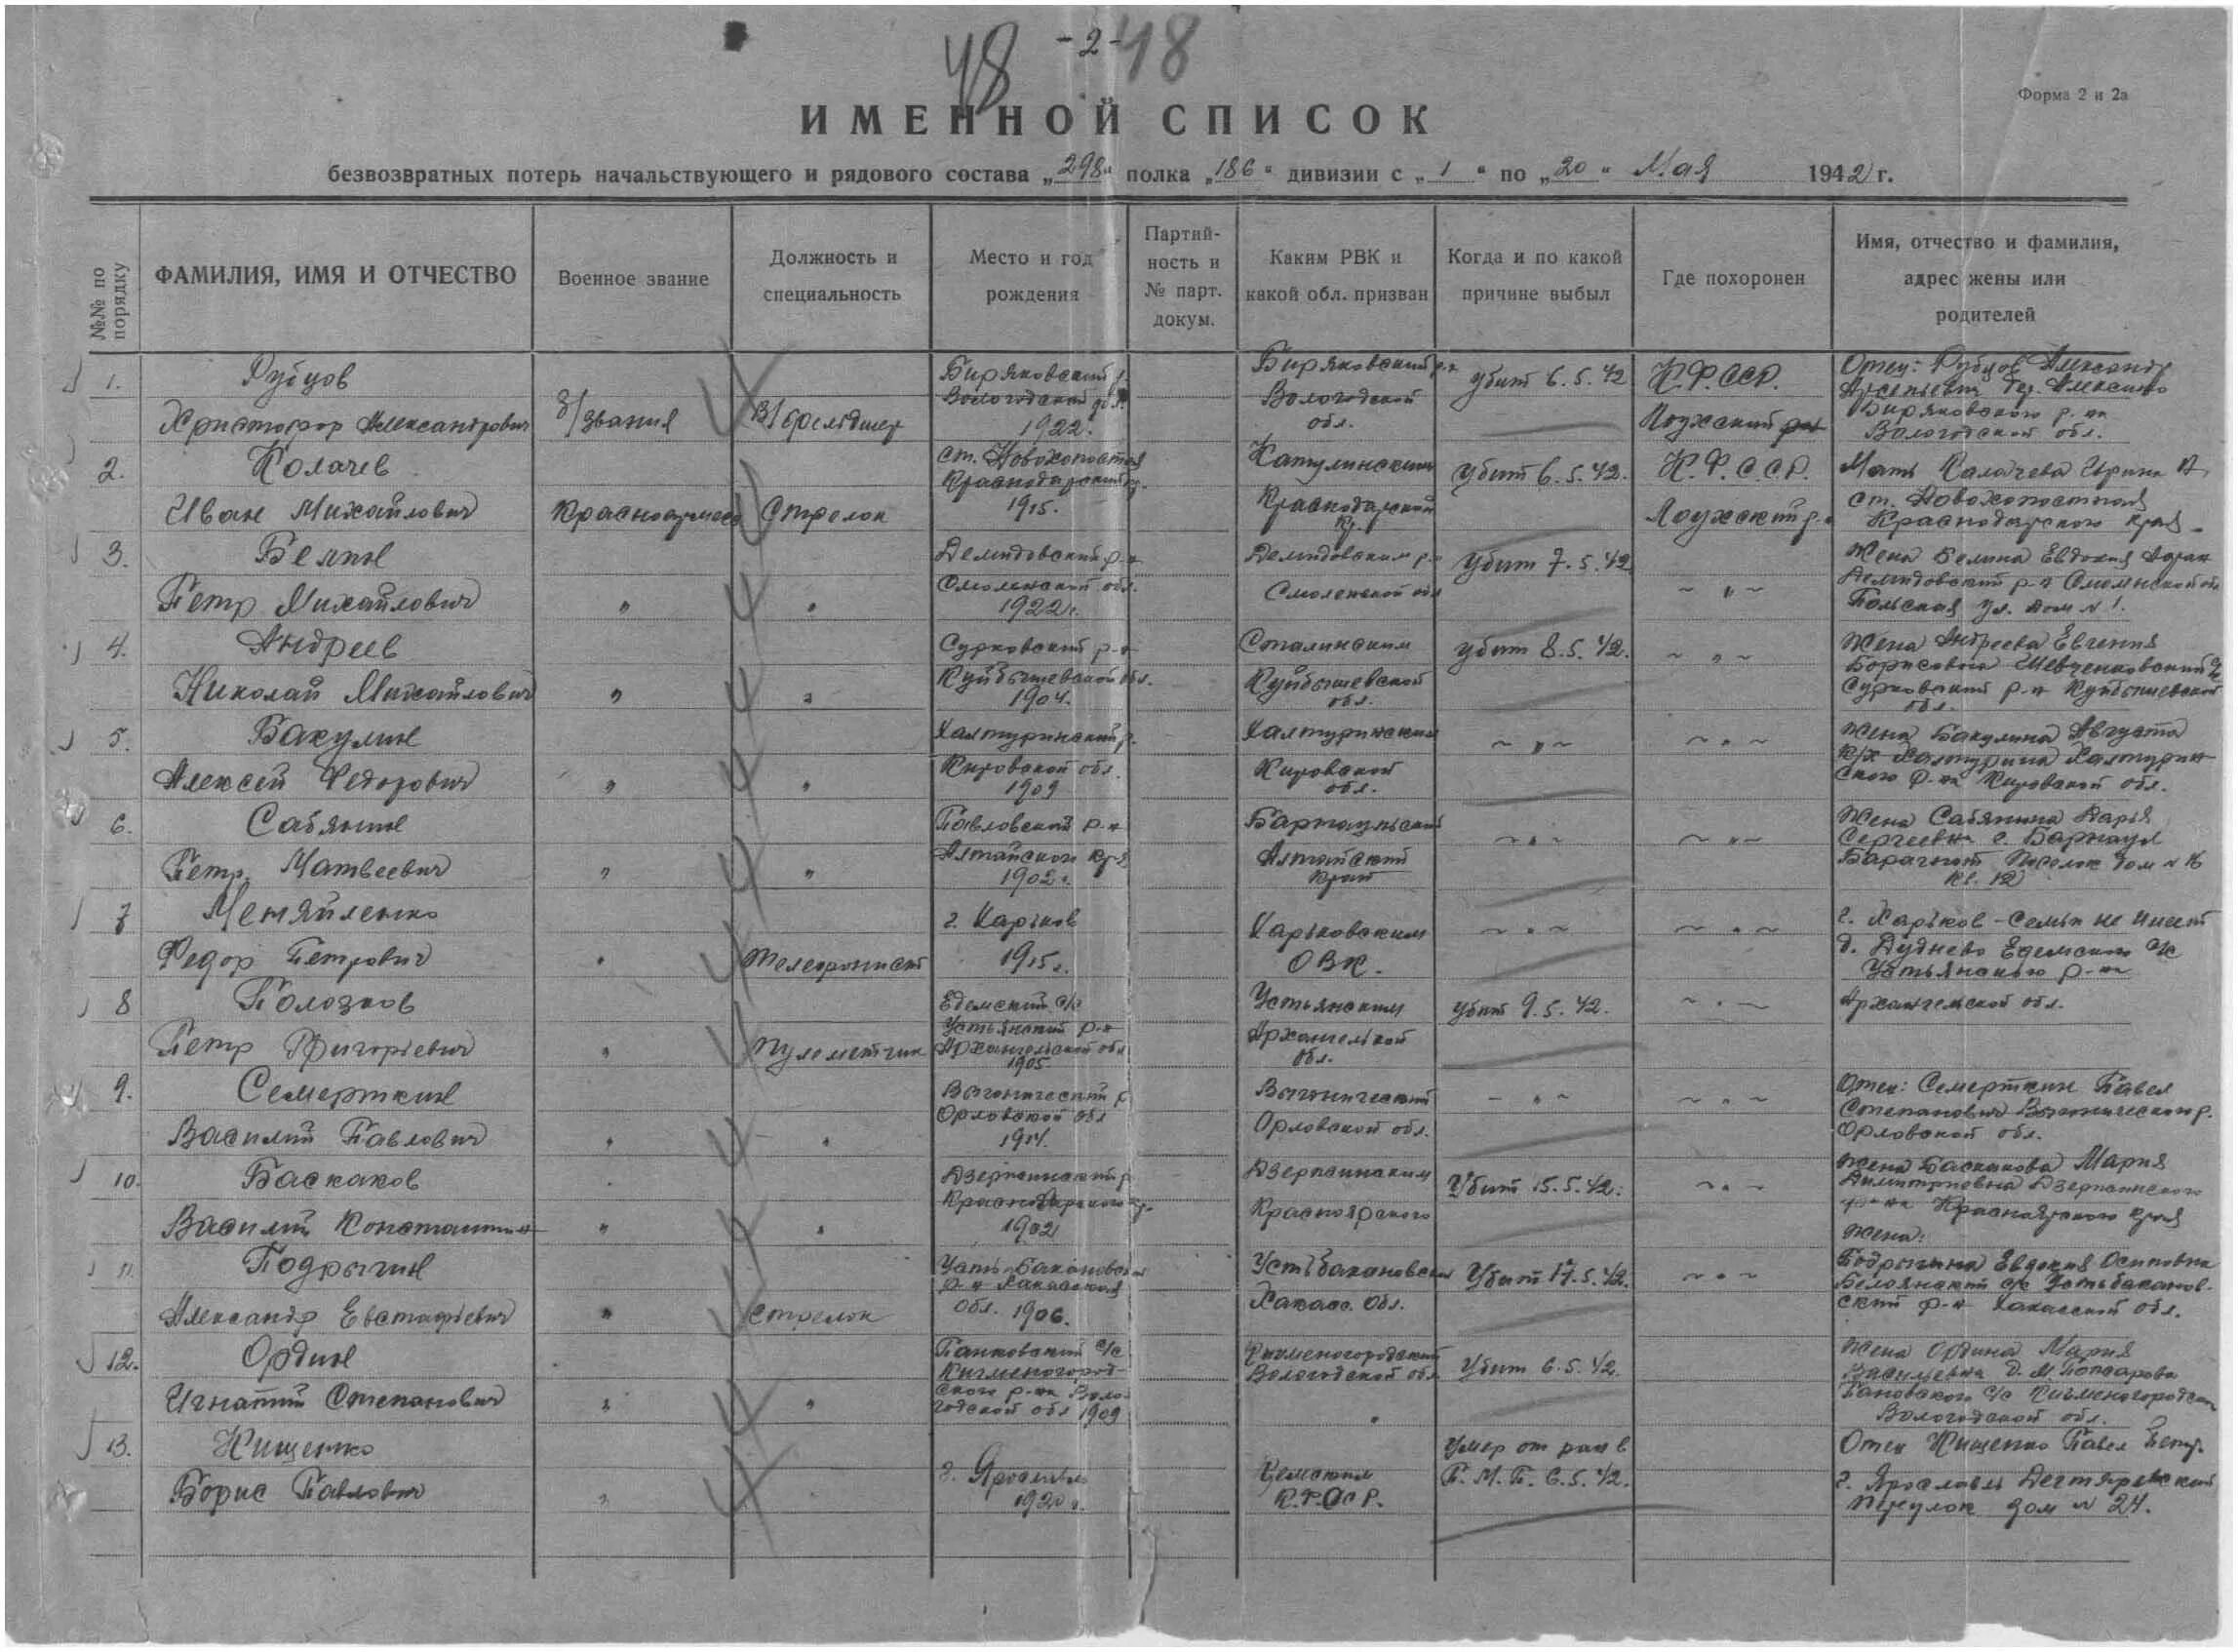 - 2 -
48
48
Форма 2 и 2а
ИМЕННОЙ СПИСОК
безвозвратных потерь начальствующего и рядового состава „298" полка „186" дивизии с „1" по „20" Мая 1942 г.
№№ по порядку
ФАМИЛИЯ, ИМЯ И ОТЧЕСТВО
Военное звание
Должность и специальность
Место и год рождения
Партий-ность и № парт. докум.
Каким РВК и какой обл. призван
Когда и по какой причине выбыл
Где похоронен
Имя, отчество и фамилия, адрес жены или родителей
1. Рубцов
Христофор Александрович
б/звания
В/фельдшер
Биряковский р.
Вологодской обл.
1922.
Биряковский р-н
Вологодской
обл.
убит 6.5.42
К.Ф.ССР.
Лоухский
Отец: Рубцов Александр
Арсеньевич дер. Алексино
Биряковского р-на
Вологодской обл.
2. Колачев
Иван Михайлович
Красноармеец
Стрелок
ст. Новохопостная
Краснодарский кр.
1915.
Краснодарской
Кр.
убит 6.5.42.
К.Ф.С.С.Р.
Лоухский р-н
Мать Калачева Ирина
ст. Новохопостная
Краснодарского края
3. Белин
Петр Михайлович
"
"
Демидовский р-н
Смоленской обл.
1922г.
Демидовским р-н
Смоленской обл
убит 7.5.42
~ " ~
Жена Белина Евдокия
Демидовский р-н Смоленской обл
Польская ул. дом № 1.
4. Андреев
Николай Михайлович
"
"
Сурковский р-н
Куйбышевской обл.
1904.
Сталинским
Куйбышевской
обл.
убит 8.5.42.
~ " ~
Жена Андреева Евгения
Борисовна Шевченковский
Сурковский р-н Куйбышевской
обл.
5. Бакулин
Алексей Федорович
"
"
Халтуринский р.
Кировской обл.
1909
Халтуринским
Кировской
обл.
~ " ~
~ " ~
Жена Бакулина Августа
к/х Халтурина Халтурин-
ского р-на Кировской обл.
6. Сабянин
Петр Матвеевич
"
"
Павловский р-н
Алтайского кр-я
1902г.
Барнаульский
Алтайский
край
~ " ~
~ " ~
Жена Сабянина Дарья
Сергеевна г. Барнаул
Барачный Поселок дом № 16
кв. 12
7 Меняйленко
Федор Петрович
"
Телефонист
г. Харьков
1915г.
Харьковским
ОВК.
~ " ~
~ " ~
г. Харьков - Семьи не имеет
8 Полозков
Петр Григорьевич
"
Пулеметчик
Едемский с/с
Устьянский р-н
Архангельской обл
1905.
Устьянским
Архангельской
обл.
убит 9.5.42.
~ " ~
д. Дуднево Едемского с/с
Устьянского р-на
Архангельской обл.
9. Семерткин
Василий Павлович
"
"
Выгонический р
Орловской обл
1914.
Выгонический
Орловской обл.
- " ~
~ " ~
Отец: Семерткин Павел
Степанович Выгонического р.
Орловской обл.
10. Баскаков
Василий Константин
"
"
Дзержинский р
Красноярского кр.
1902
Дзержинским
Красноярского
Убит 15.5.42.
~ " ~
Жена Баскакова Мария
Димитриовна Дзержинского
р-на Красноярского края
11. Подрыгин
Александр Евстафьевич
"
Стрелок
Усть-Бакановский
р-н Хакасской
обл. 1906.
Устьбакановским
Хакасс. Обл.
Убит 17.5.42.
~ " ~
Жена:
Подрыгина Евдокия Осиповна
Белоянский с/с Устьбаканов-
ский р-н Хакасской обл.
12. Ордин
Игнатий Степанович
"
"
Панковский с/с
Кичменогород-
ского р-на Воло-
годской обл 1909
Кичменогородский
Вологодской обл
Убит 6.5.42
Жена Ордина Мария
Васильевна
с/с Кичменогородского
Вологодской обл.
13. Нищенко
Борис Павлович
"
г. Ярославль
1920г.
Кемским
К.Ф.ССР.
Умер от ран в
П.М.П. 6.5.42.
Отец Нищенко Павел Петр.
г. Ярославль Дегтяревский
переулок дом № 24.